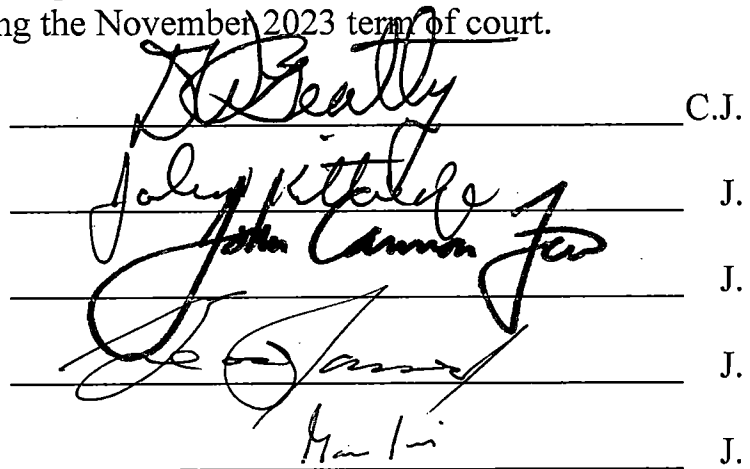 ng the November 2023 term of court.
D W Beatty C.J.
John Kittredge J.
John Cannon Few J.
J.
J.